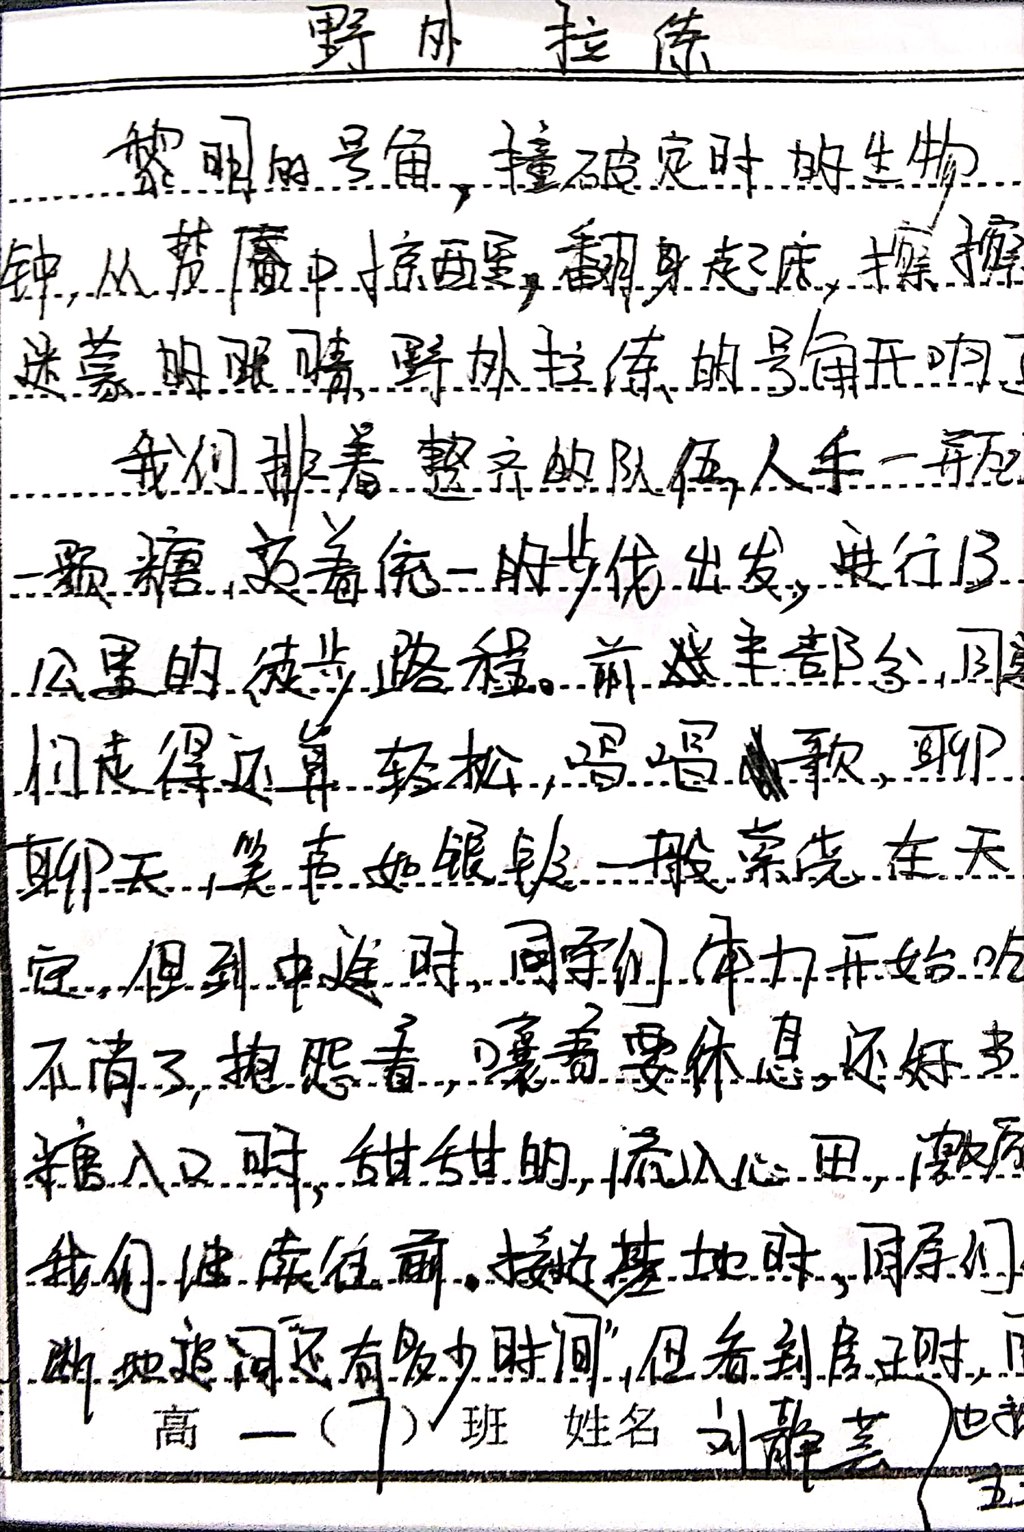 野外拉练
黎明的号角,撞破定时的生物
钟,从梦魇中惊醒,翻身起床,擦擦
迷蒙的眼睛,野外拉练的号角开响
我们排着整齐的队伍,人手一瓶
一颗糖,迈着统一的步伐出发,进行13
公里的徒步路程。前半部分,同学
们走得还算轻松,唱唱歌,聊
聊天,笑声如银铃一般萦绕在天
空,但到中途时,同学们体力开始吃
不消了,抱怨着,嚷着要休息,还好
糖入口时,甜甜的,流入心田,激励
我们继续往前。接近基地时,同学们
断地追问"还有多少时间",但看到房子时,
高一(7)班 姓名 刘静芸
也